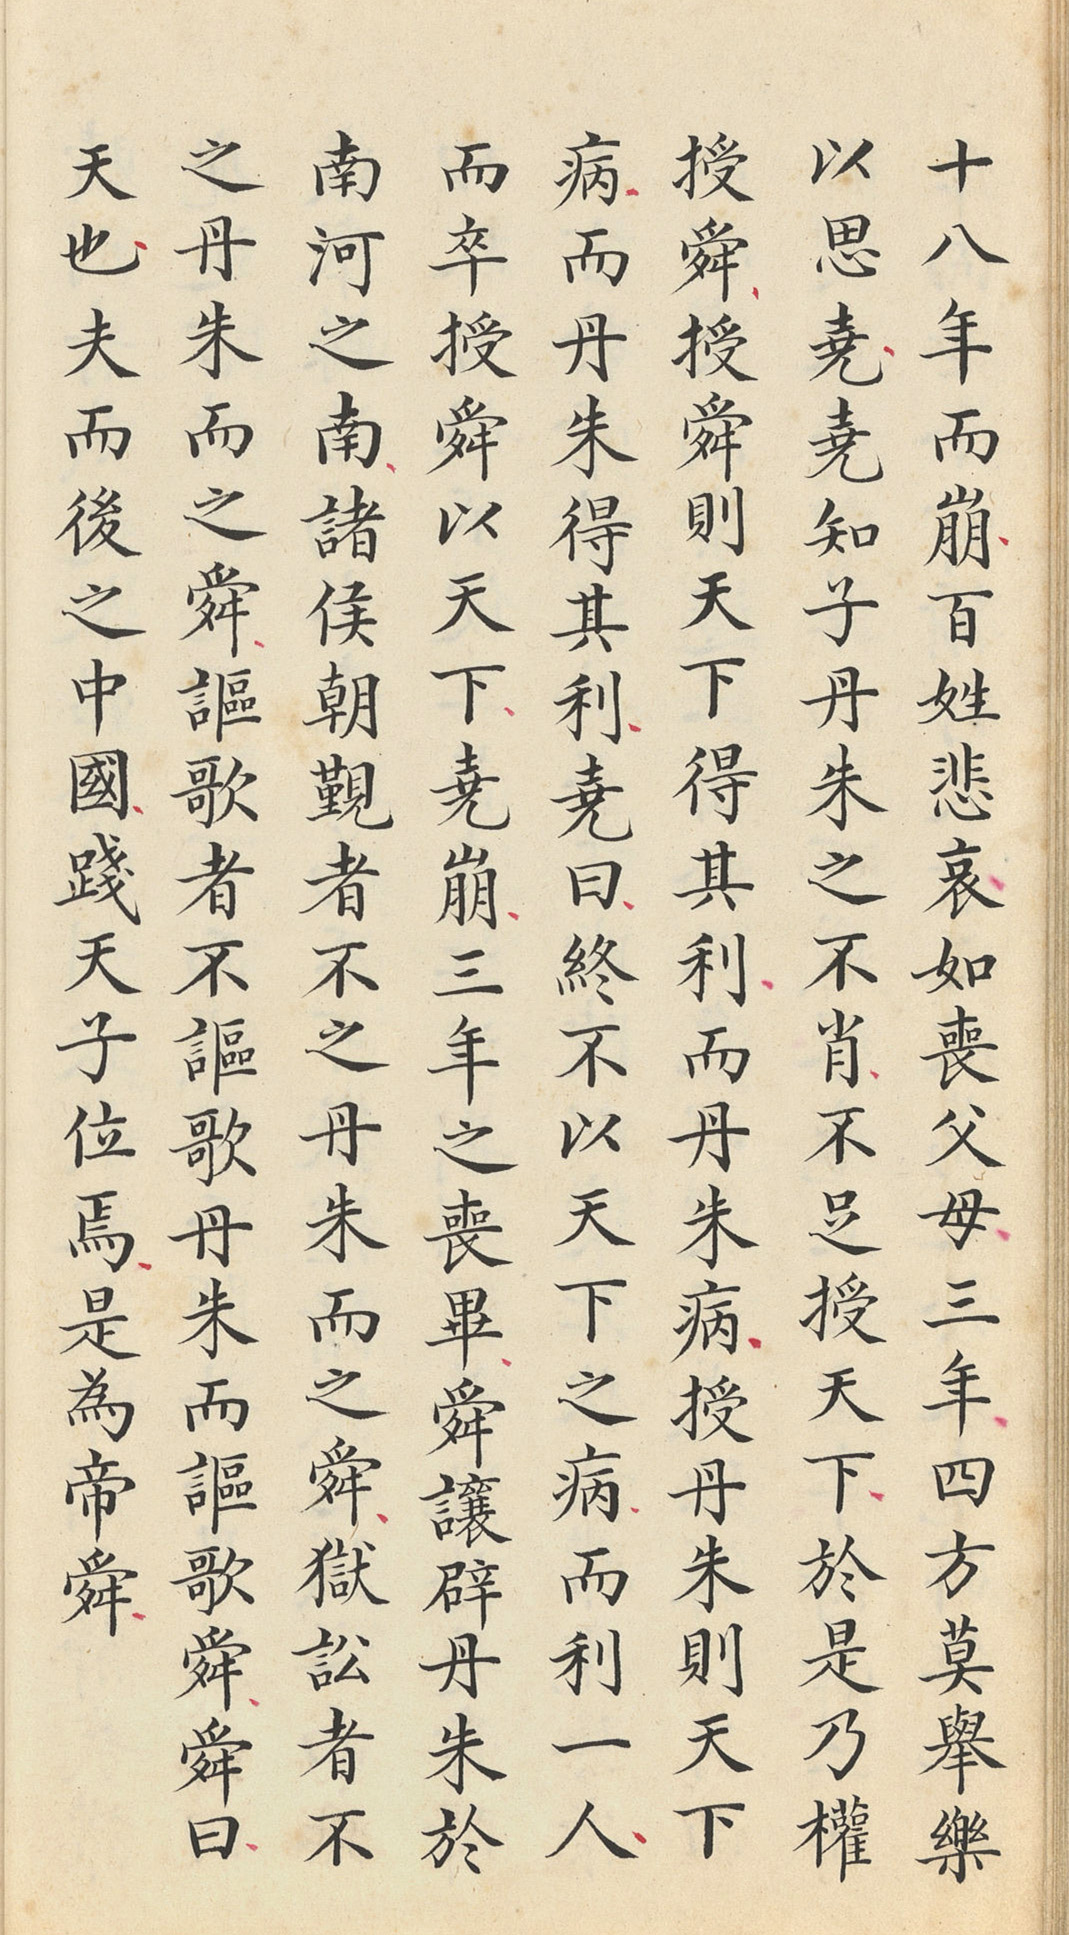 十八年而崩百姓悲哀如喪父母三年四方莫舉樂
以思堯堯知子丹朱之不肖不足授天下於是乃權
授舜授舜則天下得其利而丹朱病授丹朱則天下
病而丹朱得其利堯曰終不以天下之病而利一人
而卒授舜以天下堯崩三年之喪畢舜讓辟丹朱於
南河之南諸侯朝覲者不之丹朱而之舜獄訟者不
之丹朱而之舜謳歌者不謳歌丹朱而謳歌舜舜曰
天也夫而後之中國踐天子位焉是為帝舜